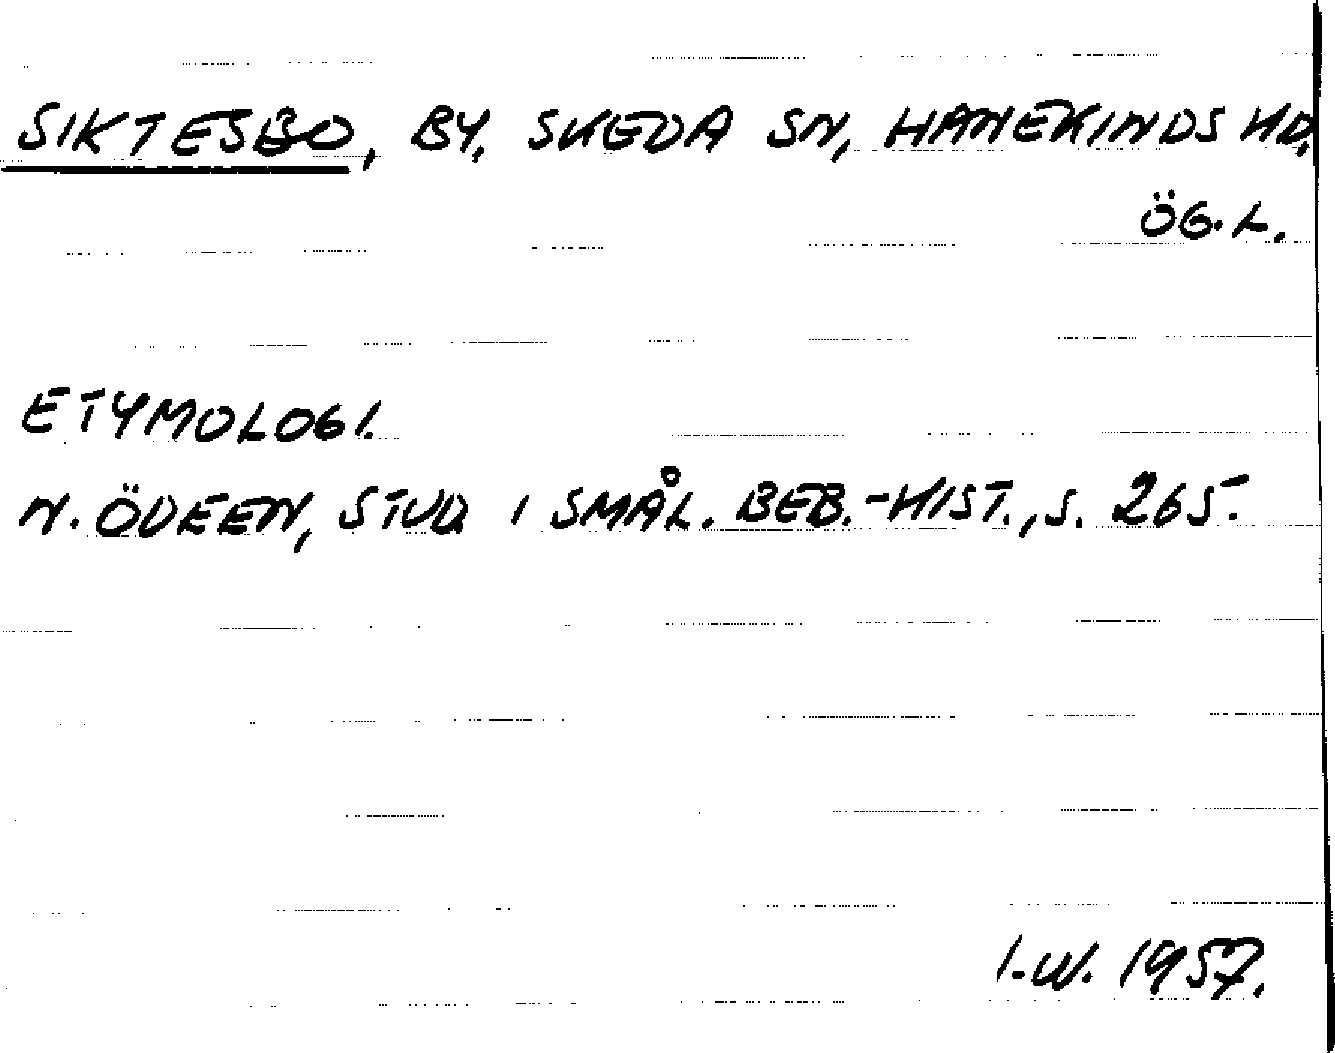 SIKTESBO, BY, SKEDA SN, HANEKINDS HD,
ÖG.L.
ETYMOLOGI.
N. ÖDEEN, STUD. I SMÅL. BEB.-HIST., S. 265.
I-W. 1957.